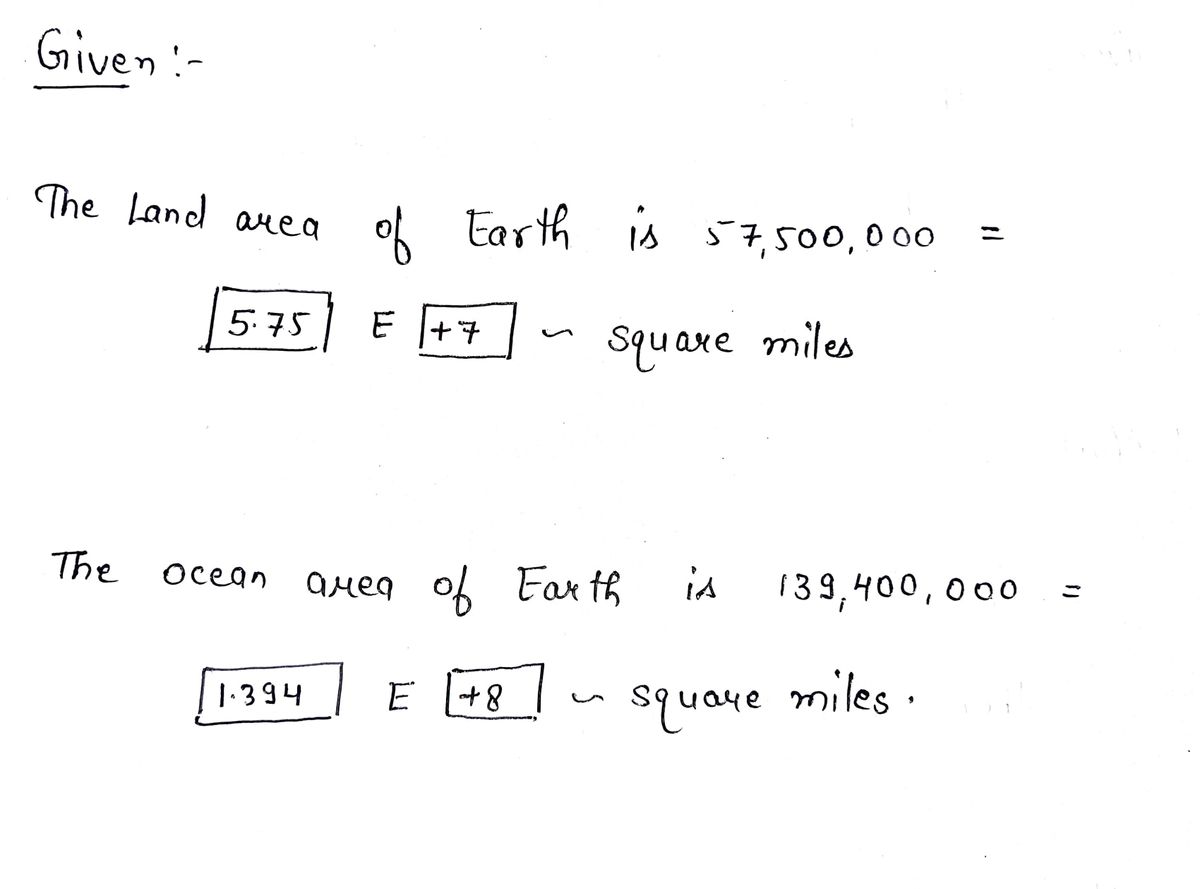 Given :-
The Land area of Earth is 57,500,000 =
5.75 E +7 ~ square miles
The ocean area of Earth is 139,400,000 =
1.394 E +8 ~ square miles.